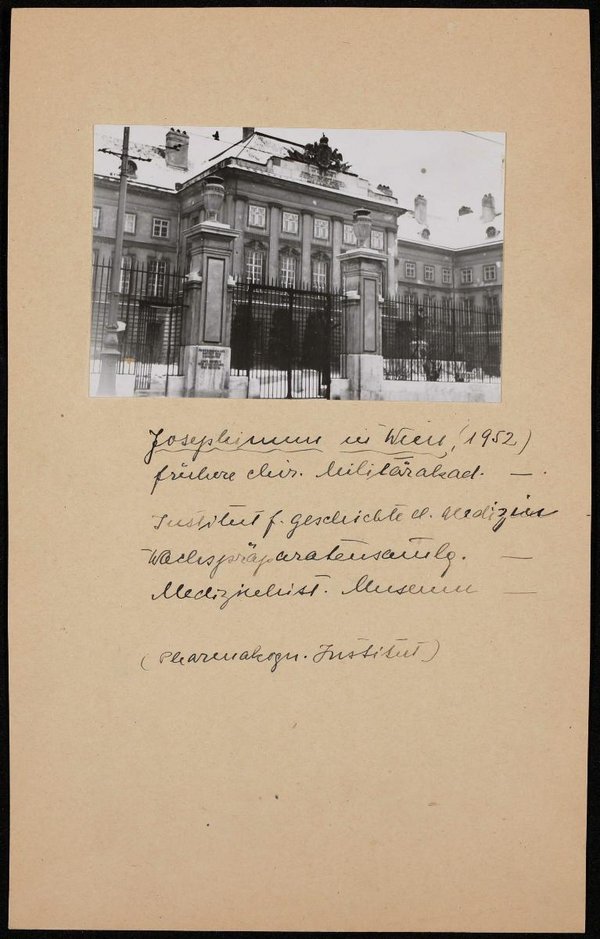 Josephinum in Wien (1952)
frühere chir. Militärakad. —
Institut f. geschichte d. Medizin
Wachspräparatensamlg. —
Medizinhist. Museum —
(Pharmakogn. Institut)